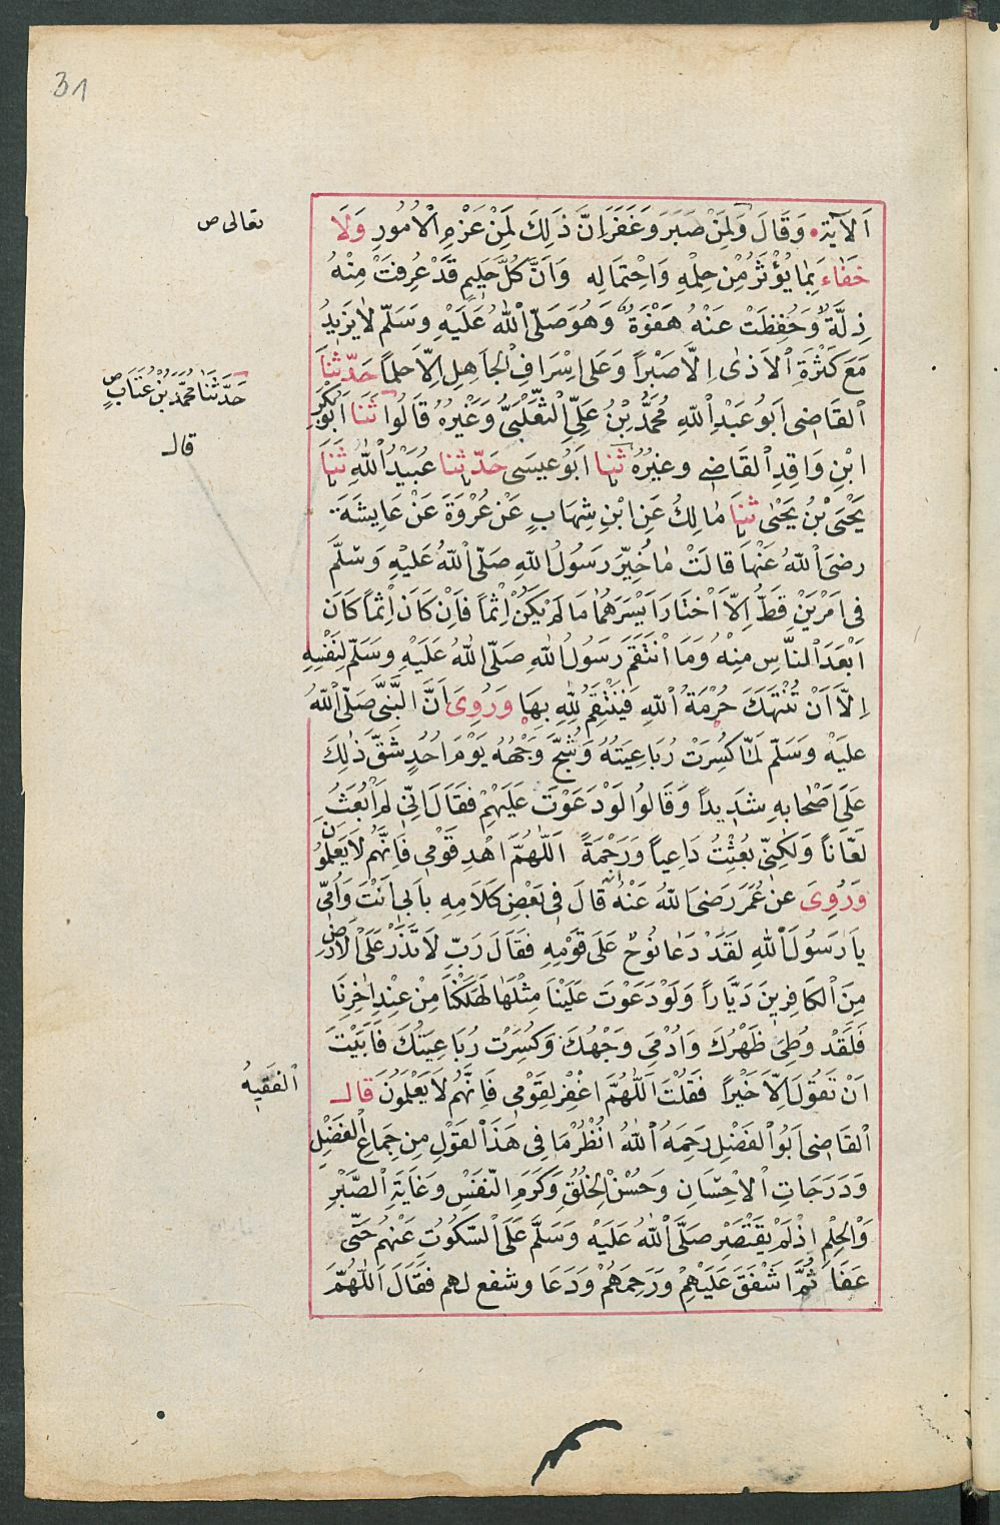 31
اَلْآيَةَ وَقَالَ وَلَمَنْ صَبَرَ وَغَفَرَ اِنَّ ذَلِكَ لَمِنْ عَزْمِ الْاُمُورِ وَلَا
تعالى ص
خَفَاءَ بِمَا يُؤْثَرُ مِنْ حِلْمِهِ وَاحْتِمَالِهِ وَاَنَّ كُلَّ حَلِيمٍ قَدْ عُرِفَتْ مِنْهُ
زِلَّةٌ وَحُفِظَتْ عَنْهُ هَفْوَةٌ وَهُوَ صَلَّى اللهُ عَلَيْهِ وَسَلَّم لَا يَزِيدُ
مَعَ كَثْرَةِ الْاَذٰى اِلَّا صَبْراً وَعَلَى اِسْرَافِ الْجَاهِلِ اِلَّا حِلماً حَدّثنَا
حَدَّثَنَا مُحَمَّدُ بْنُ عَتَّابٍ ص
الْقَاضِى اَبُو عَبْدِ اللهِ مُحَمَّدُ بْنُ عَلِيٍّ الثَّعْلَبِيُّ وَغَيْرُهُ قَالُوا ثَنَا اَبُو بَكْرِ
قال
ابْنِ وَاقِدِ الْقَاضِى وغيْرُهُ ثنا اَبُو عِيسَى حَدّثنا عُبَيْدُ اللهِ ثَنَا
يَحْيَى بْنُ يَحْيٰى ثنَا مَالِكٌ عَنِ ابْنِ شِهَابٍ عَنْ عُرْوَةَ عَنْ عَايِشَةَ
رضىَ اللهُ عَنْهَا قَالَتْ مَا خُيِّرَ رَسُولُ اللهِ صَلَّى اللهُ عَلَيْهِ وَسَلَّم
فى اَمْرَيْنِ قَطُّ اِلَّا اخْتَارَ اَيْسَرَهُمَا مَا لَمْ يَكُنْ اِثْماً فَاِنْ كَانَ اِثْماً كَانَ
اَبْعَدَ النَّاسِ مِنْهُ وَمَا انْتَقَمَ رَسُولُ اللهِ صَلَّى اللهُ عَلَيْهِ وَسَلَّم لِنَفْسِهِ
اِلَّا اَنْ تُنْتَهَكَ حُرْمَةُ اللهِ فَيَنْتَقِمُ لِلهِ بِهَا وَرُوِىَ اَنَّ النَّبِىَّ صَلَّى اللهُ
عليَهْ وَسَلَّم لَمَّا كُسِرَتْ رُبَاعِيَتُهُ وَشُجَّ وَجْهُهُ يَوْمَ اُحُدٍ شَقَّ ذٰلِكَ
عَلَى اَصْحَابِهِ شَدِيداً وَقَالُوا لَوْ دَعَوْتَ عَلَيْهِمْ فَقَالَ اِنِّى لَمْ اُبْعَثْ
لَعَّاناً وَلٰكِنِّى بُعِثْتُ دَاعِياً وَرَحْمَةً اَللّٰهُمَّ اهْدِ قَوْمِى فَاِنَّهُمْ لَا يَعْلَمُونَ
وَرُوِىَ عنْ عُمَرَ رَضىَ اللهُ عَنْهُ انه قَالَ فِى بَعْضِ كَلَامِهِ بِاَبِى اَنْتَ وَاُمِّى
يَا رَسُولَ اللهِ لَقَدْ دَعَا نُوحٌ عَلَى قَوْمِهِ فَقَالَ رَبِّ لَا تَذَرْ عَلَى الْاَرْضِ
مِنَ الْكَافِرِينَ دَيَّاراً وَلَوْ دَعَوْتَ عَلَيْنَا مِثْلَهَا لَهَلَكْنَا مِنْ عِنْدِ اٰخِرِنَا
فَلَقَدْ وُطِئَ ظَهْرُكَ وَاُدْمِىَ وَجْهُكَ وَكُسِرَتْ رُبَاعِيَتُكَ فَاَبَيْتَ
اَنْ تَقُولَ اِلَّا خَيْراً فَقُلْتَ اَللّٰهُمَّ اغْفِرْ لِقَوْمِى فَاِنَّهُمْ لَا يَعْلَمُونَ قال
الْفَقِيهُ
الْقَاضِى اَبُو الْفَضْلِ رَحِمَهُ اللهُ انْظُرْ مَا فِى هَذَا الْقَوْلِ مِن جِمَاعِ الْفَضْلِ
وَدَرَجَاتِ الْاِحْسَانِ وَحُسْنِ الْخُلُقِ وَكَرَمِ النَّفْسِ وَغَايَةِ الصَّبْرِ
وَالْحِلْمِ اِذْ لَمْ يَقْتَصِرْ صَلَّى اللهُ عَلَيْهِ وَسَلَّمَ عَلَى السُّكُوتِ عَنْهُمْ حَتّٰى
عَفَا ثُمَّ اَشْفَقَ عَلَيْهِمْ وَرَحِمَهُمْ وَدَعَا وشفع لهم فَقَالَ اَللّٰهُمَّ